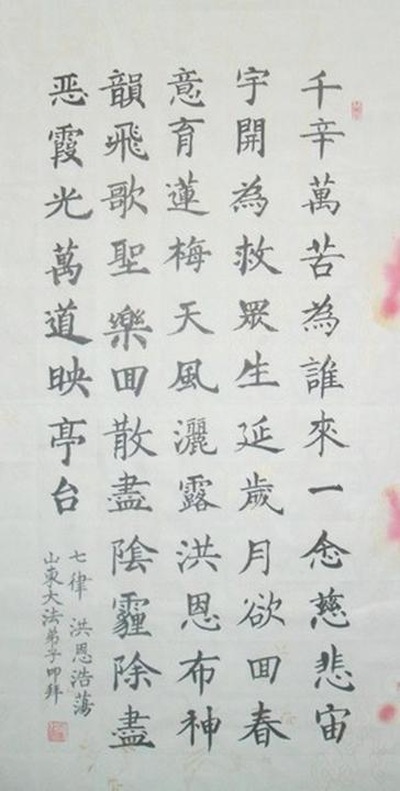 千辛萬苦為誰來一念慈悲宙
宇開為救眾生延歲月欲回春
意育蓮梅天風灑露洪恩布神
韻飛歌聖樂回散盡陰霾除盡
恶霞光萬道映亭台
七律 洪恩浩蕩
山東大法弟子叩拜